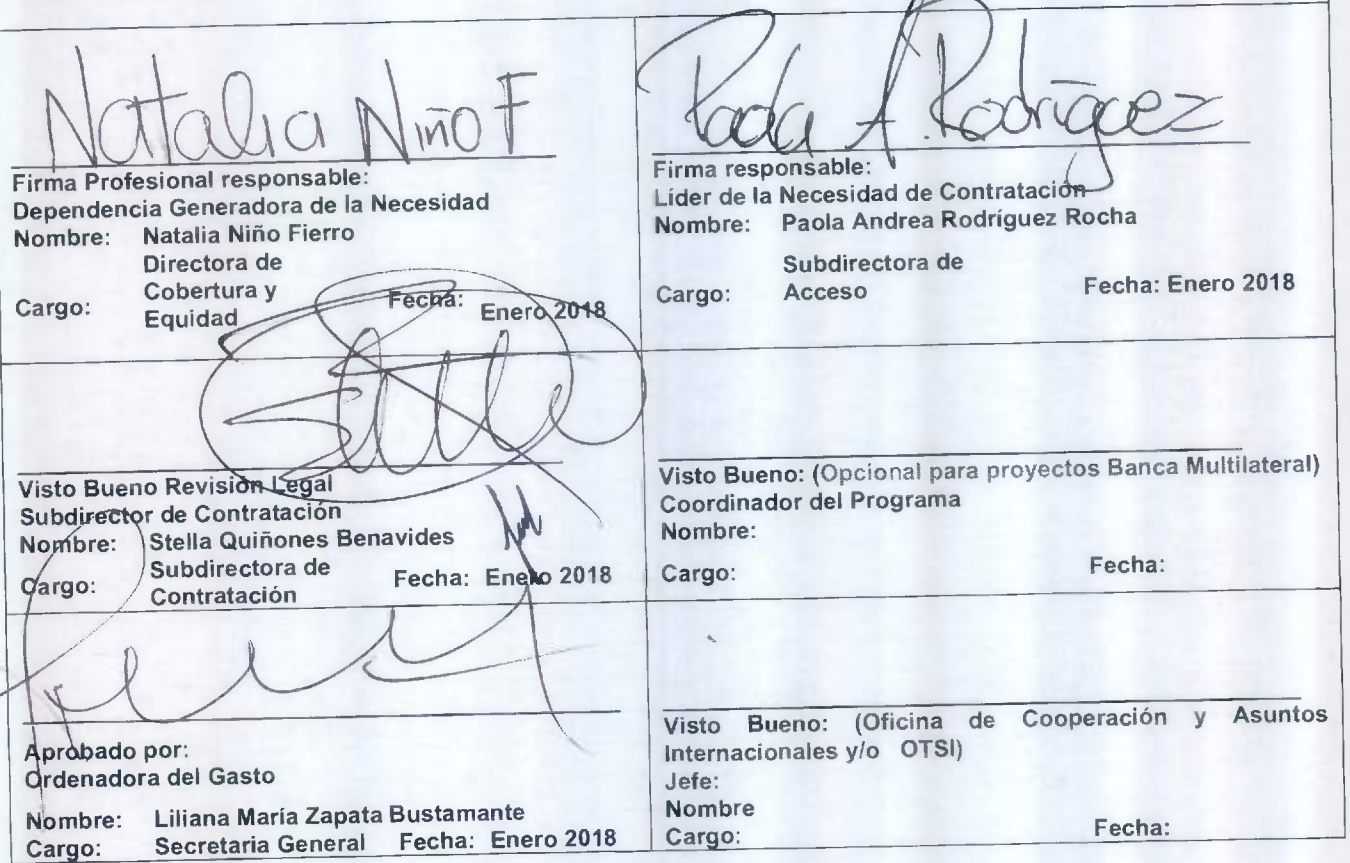 Natalia Niño F
Firma Profesional responsable:
Dependencia Generadora de la Necesidad
Nombre: Natalia Niño Fierro
Directora de
Cobertura y
Cargo: Equidad Fecha: Enero 2018
Paola A. Rodríguez
Firma responsable:
Líder de la Necesidad de Contratación
Nombre: Paola Andrea Rodríguez Rocha
Subdirectora de
Cargo: Acceso Fecha: Enero 2018
Visto Bueno Revisión Legal
Subdirector de Contratación
Nombre: Stella Quiñones Benavides
Subdirectora de
Cargo: Contratación Fecha: Enero 2018
Visto Bueno: (Opcional para proyectos Banca Multilateral)
Coordinador del Programa
Nombre:
Cargo: Fecha:
Aprobado por:
Ordenadora del Gasto
Nombre: Liliana María Zapata Bustamante
Cargo: Secretaria General Fecha: Enero 2018
Visto Bueno: (Oficina de Cooperación y Asuntos
Internacionales y/o OTSI)
Jefe:
Nombre
Cargo: Fecha: